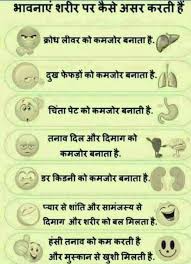 भावनाएं शरीर पर कैसे असर करती हैं
क्रोध लीवर को कमजोर बनाता है.
दुख फेफड़ों को कमजोर बनाता है.
चिंता पेट को कमजोर बनाती है.
तनाव दिल और दिमाग को
कमजोर बनाता है.
डर किडनी को कमजोर बनाता है.
प्यार से शांति और सामंजस्य से
दिमाग और शरीर को बल मिलता है.
हंसी तनाव को कम करती है
और मुस्कान से खुशी मिलती है.